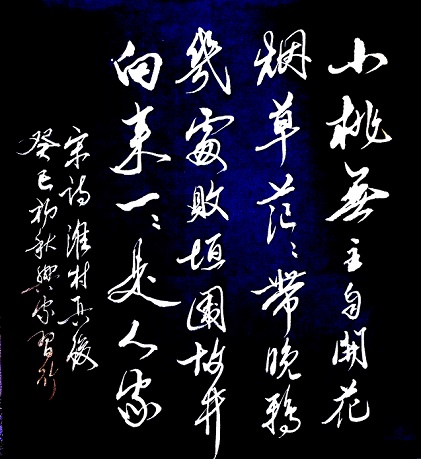 小桃無主自開花
烟草茫々帶晚鴉
幾處敗垣圍故井
向来一々是人家
宋詩淮村兵後
癸巳初秋興家習